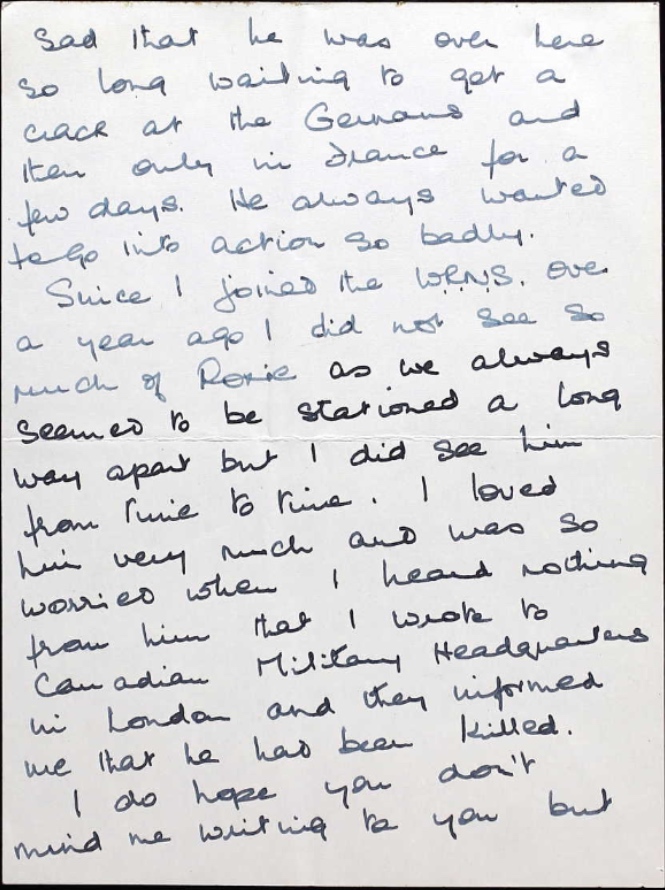 sad that he was over here
so long waiting to get a
crack at the Germans and
then only in France for a
few days. He always wanted
to go into action so badly.
Since I joined the WRNS. over
a year ago I did not see so
much of Roxie as we always
seemed to be stationed a long
way apart but I did see him
from time to time. I loved
him very much and was so
worried when I heard nothing
from him that I wrote to
Canadian Military Headquarters
in London and they informed
me that he had been killed.
I do hope you don't
mind me writing to you but